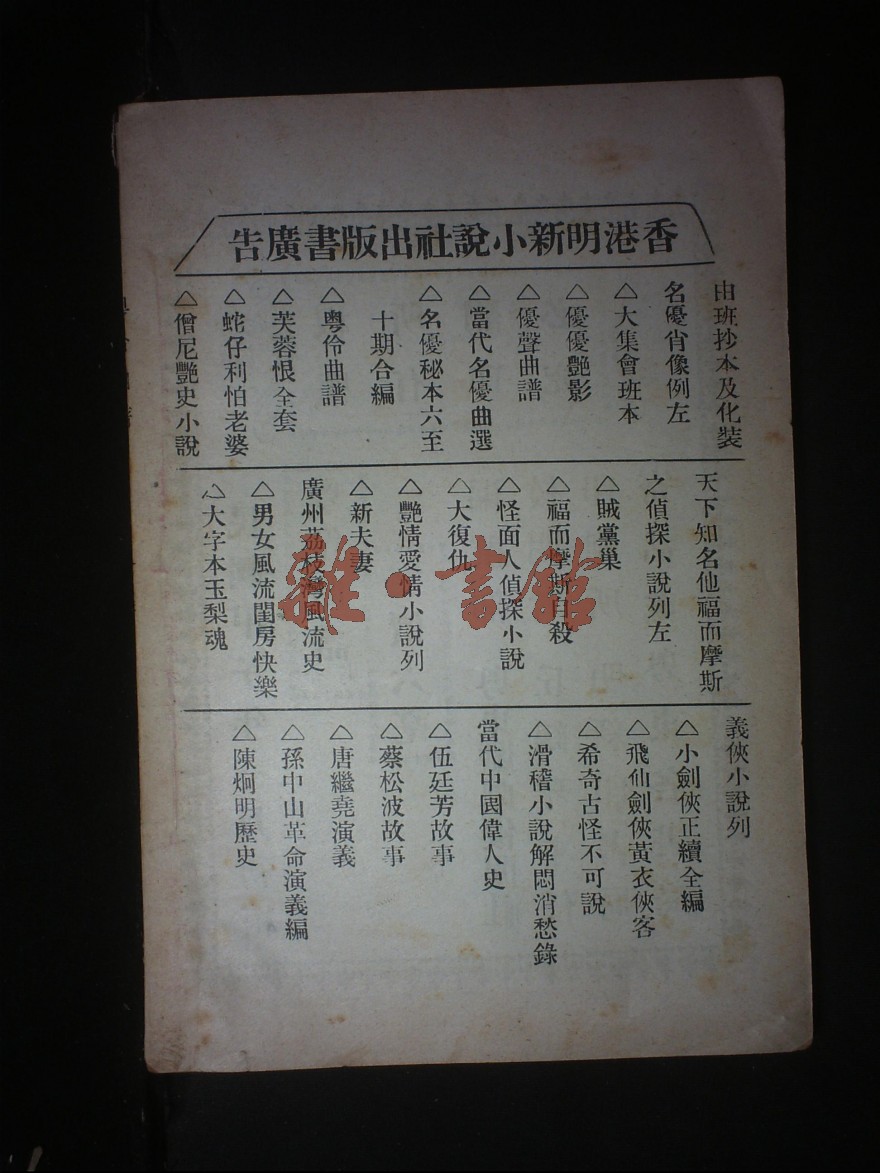 香港明新小說社出版書廣告
由班抄本及化裝
名優肖像例左
△大集會班本
△優優艷影
△優聲曲譜
△當代名優曲選
△名優秘本六至
十期合編
△粵伶曲譜
△芙蓉恨全套
△蛇仔利怕老婆
△僧尼艷史小說
天下知名他福而摩斯
之偵探小說列左
△賊黨巢
△福而摩斯自殺
△怪面人偵探小說
△大復仇
△艷情愛情小說列
△新夫妻
廣州荔枝灣風流史
△男女風流閨房快樂
△大字本玉梨魂
義俠小說列
△小劍俠正續全編
△飛仙劍俠黃衣俠客
△希奇古怪不可說
△滑稽小說解悶消愁錄
當代中國偉人史
△伍廷芳故事
△蔡松波故事
△唐繼堯演義
△孫中山革命演義編
△陳炯明歷史
雜·書館